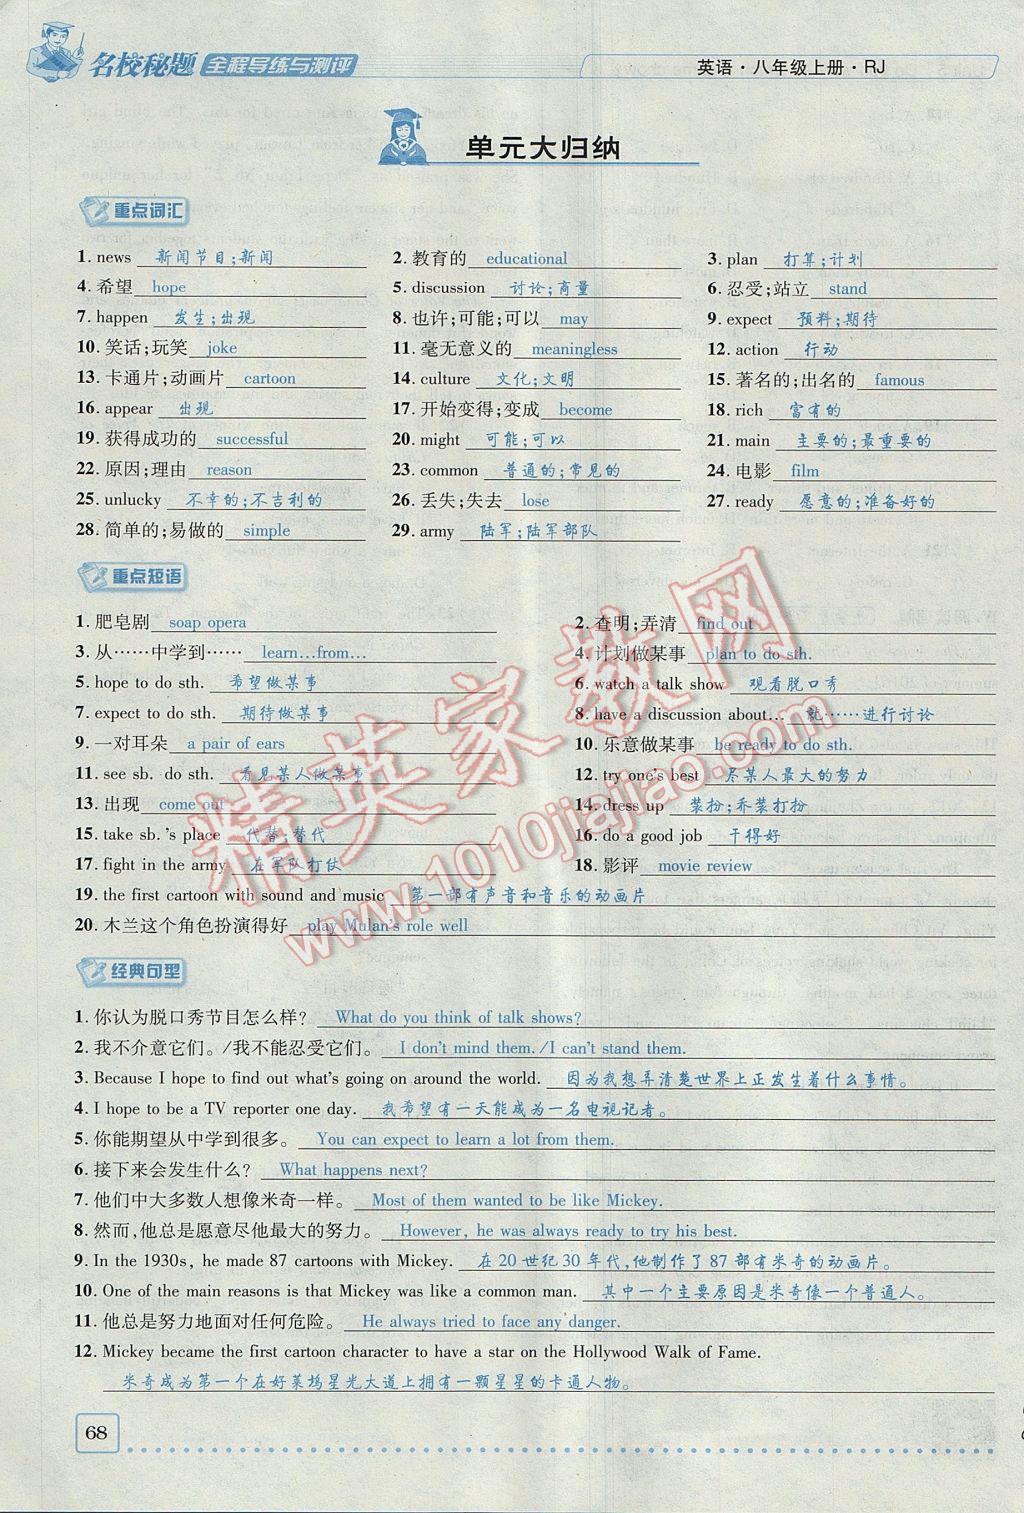 名校秘题 全程导练与测评
英语·八年级上册·RJ
单元大归纳
重点词汇
1. news 新闻节目;新闻 2. 教育的 educational 3. plan 打算;计划
4. 希望 hope 5. discussion 讨论;商量 6. 忍受;站立 stand
7. happen 发生;出现 8. 也许;可能;可以 may 9. expect 预料;期待
10. 笑话;玩笑 joke 11. 毫无意义的 meaningless 12. action 行动
13. 卡通片;动画片 cartoon 14. culture 文化;文明 15. 著名的;出名的 famous
16. appear 出现 17. 开始变得;变成 become 18. rich 富有的
19. 获得成功的 successful 20. might 可能;可以 21. main 主要的;最重要的
22. 原因;理由 reason 23. common 普通的;常见的 24. 电影 film
25. unlucky 不幸的;不吉利的 26. 丢失;失去 lose 27. ready 愿意的;准备好的
28. 简单的;易做的 simple 29. army 陆军;陆军部队
重点短语
1. 肥皂剧 soap opera 2. 查明;弄清 find out
3. 从……中学到…… learn…from… 4. 计划做某事 plan to do sth.
5. hope to do sth. 希望做某事 6. watch a talk show 观看脱口秀
7. expect to do sth. 期待做某事 8. have a discussion about… 就……进行讨论
9. 一对耳朵 a pair of ears 10. 乐意做某事 be ready to do sth.
11. see sb. do sth. 看见某人做某事 12. try one's best 尽某人最大的努力
13. 出现 come out 14. dress up 装扮;乔装打扮
15. take sb.'s place 代替;替代 16. do a good job 干得好
17. fight in the army 在军队打仗 18. 影评 movie review
19. the first cartoon with sound and music 第一部有声音和音乐的动画片
20. 木兰这个角色扮演得好 play Mulan's role well
经典句型
1. 你认为脱口秀节目怎么样? What do you think of talk shows?
2. 我不介意它们。/我不能忍受它们。 I don't mind them. /I can't stand them.
3. Because I hope to find out what's going on around the world. 因为我想弄清楚世界上正发生着什么事情。
4. I hope to be a TV reporter one day. 我希望有一天能成为一名电视记者。
5. 你能期望从中学到很多。 You can expect to learn a lot from them.
6. 接下来会发生什么? What happens next?
7. 他们中大多数人想像米奇一样。 Most of them wanted to be like Mickey.
8. 然而,他总是愿意尽他最大的努力。 However, he was always ready to try his best.
9. In the 1930s, he made 87 cartoons with Mickey. 在20世纪30年代,他制作了87部有米奇的动画片。
10. One of the main reasons is that Mickey was like a common man. 其中一个主要原因是米奇像一个普通人。
11. 他总是努力地面对任何危险。 He always tried to face any danger.
12. Mickey became the first cartoon character to have a star on the Hollywood Walk of Fame.
米奇成为第一个在好莱坞星光大道上拥有一颗星星的卡通人物。
68
精英家教网
www.1010jiajiao.com